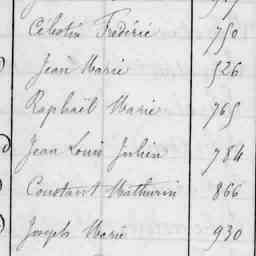 Célestin Frédéric 750
Jean Marie 526
Raphaël Marie 765
Jean Louis Julien 784
Constant Mathurin 866
Joseph Marie 930